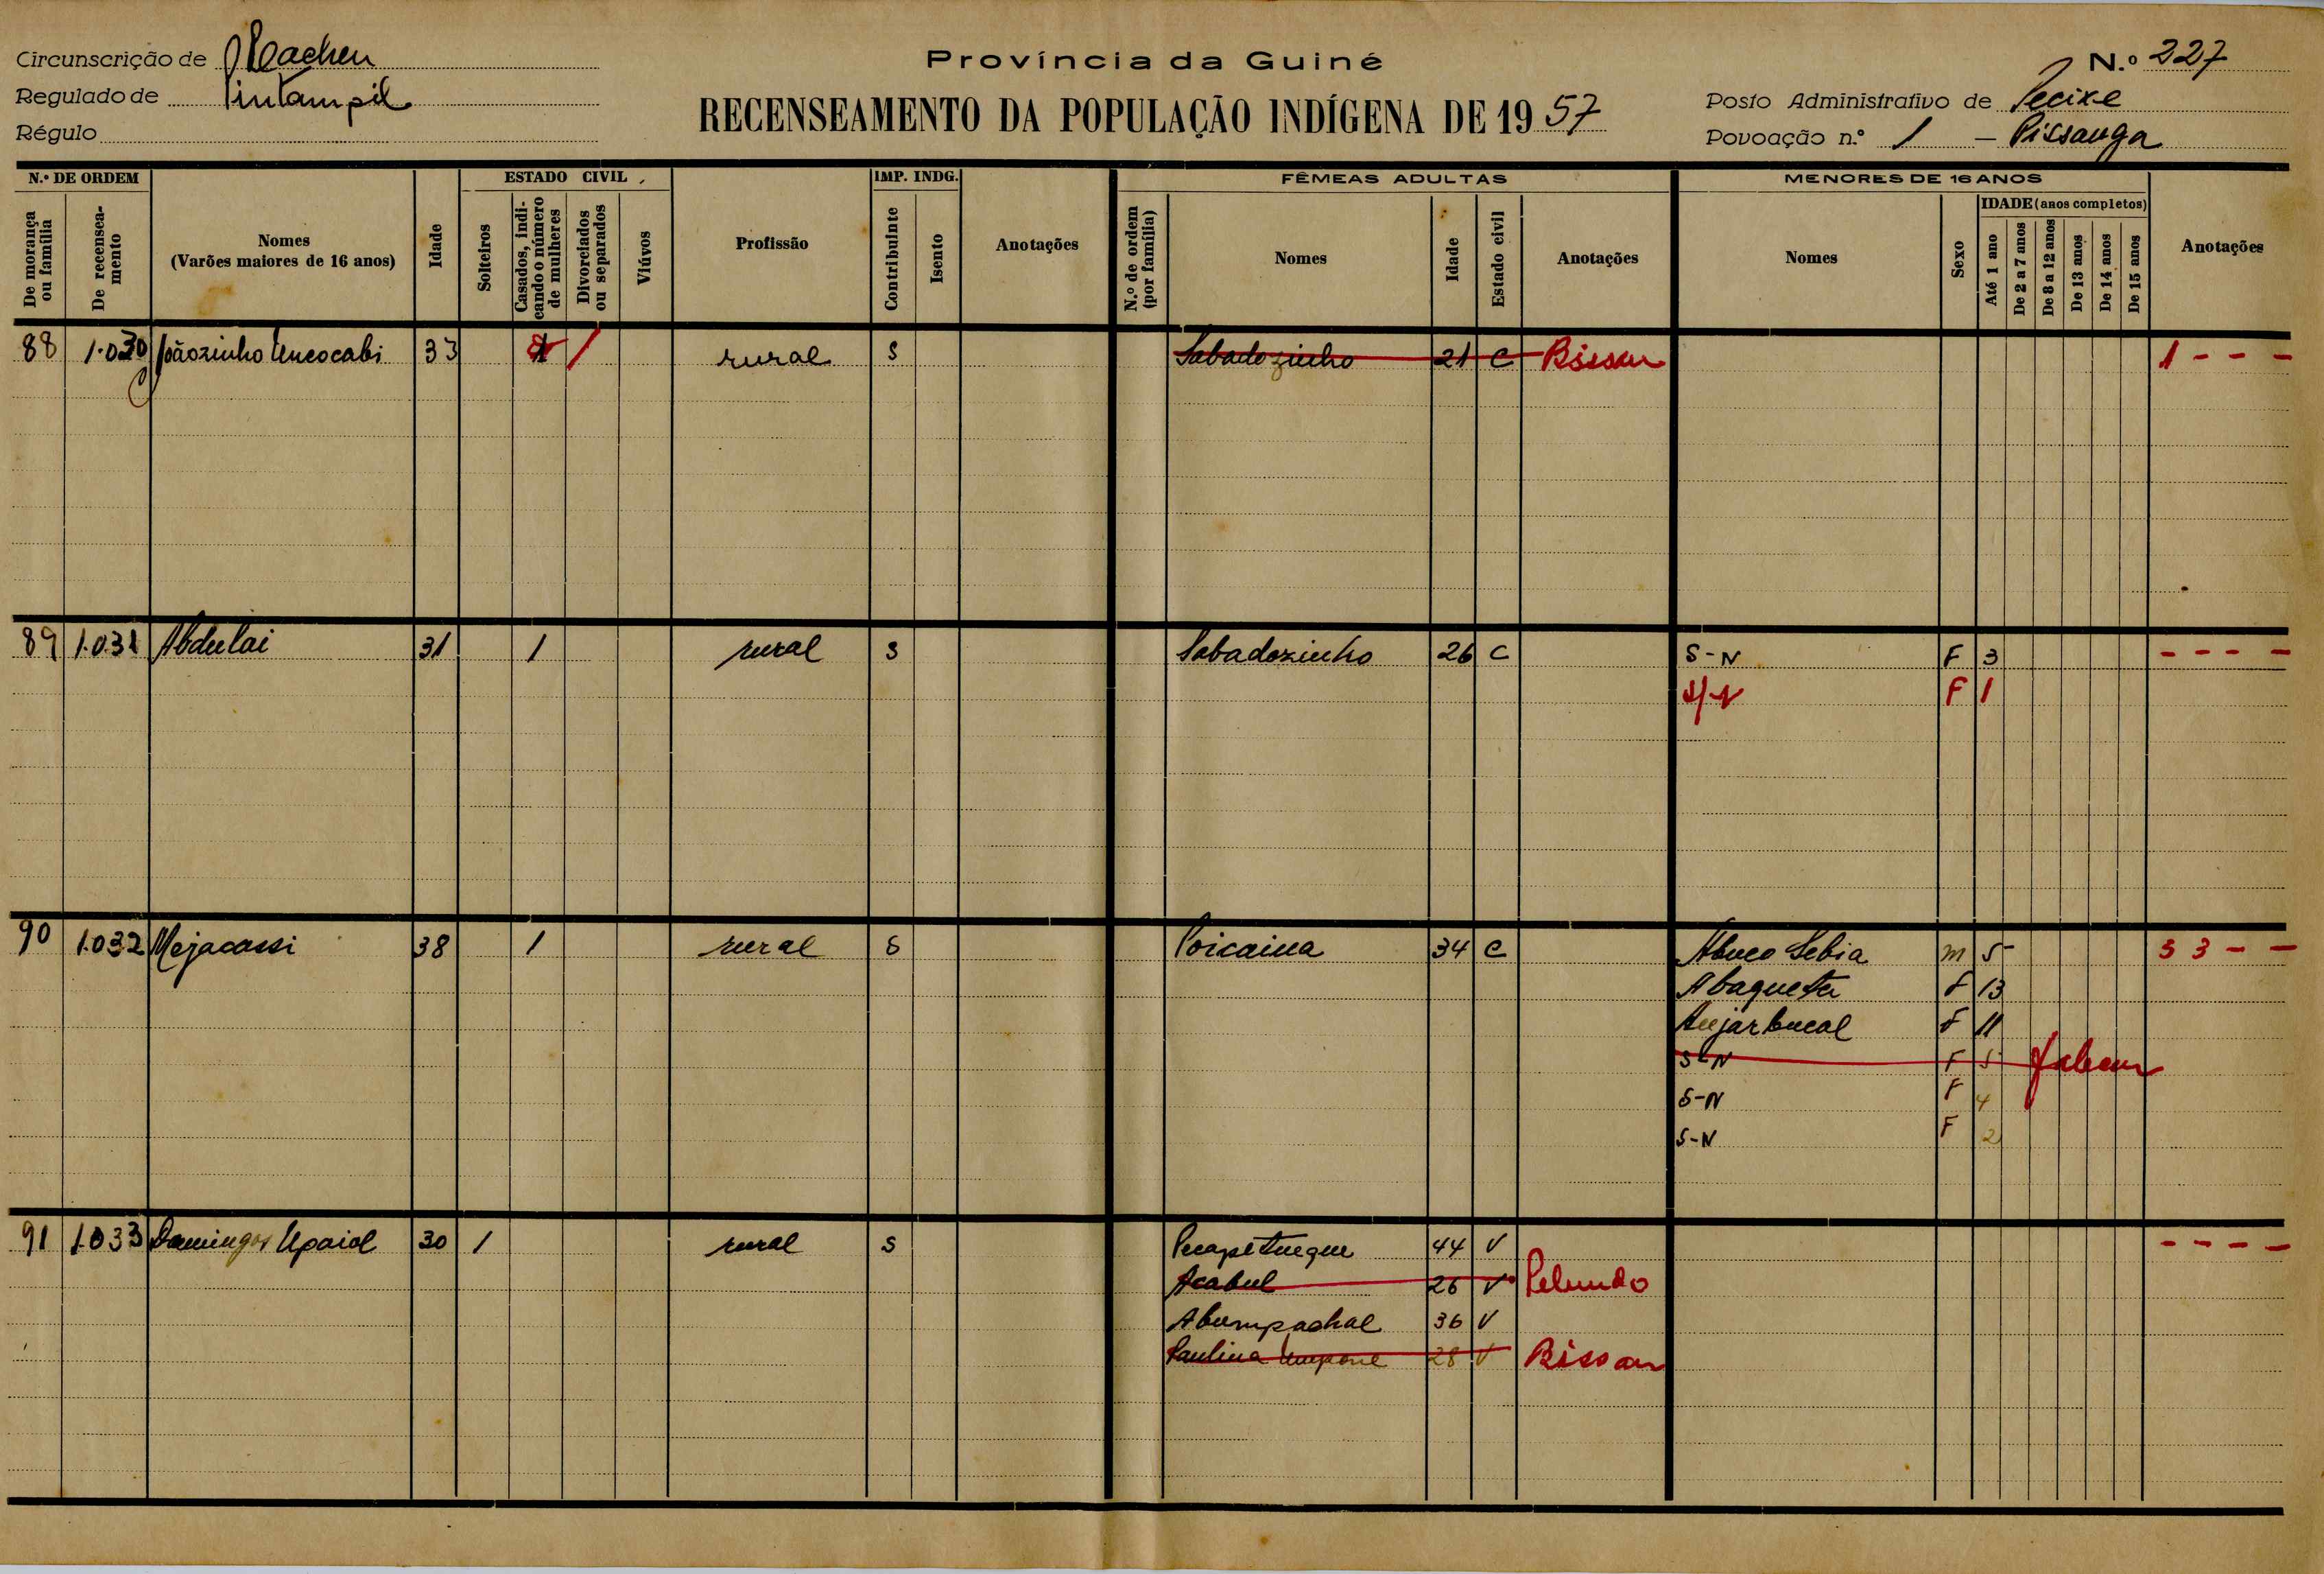 Circunscrição de Cacheu
Regulado de Pintampil
Régulo
Província da Guiné
RECENSEAMENTO DA POPULAÇÃO INDÍGENA DE 1957
N.º 227
Posto Administrativo de Pecixe
Povoação n.º 1 - Pissanga
N.º DE ORDEM
De morança ou família
De recenseamento
Nomes
(Varões maiores de 16 anos)
Idade
ESTADO CIVIL
Solteiros
Casados, indicando o número de mulheres
Divorciados ou separados
Viúvos
Profissão
IMP. INDG.
Contribuinte
Isento
Anotações
FÊMEAS ADULTAS
N.º de ordem (por família)
Nomes
Idade
Estado civil
Anotações
MENORES DE 16 ANOS
Nomes
Sexo
IDADE (anos completos)
Até 1 ano
De 2 a 7 anos
De 8 a 12 anos
De 13 anos
De 14 anos
De 15 anos
Anotações
88 1.030 Joãozinho 33 1 / rural S Sabadozinho 21 C Bissau 1 - - -
89 1.031 Abdulai 31 1 rural S Sabadozinho 26 C S-N F 3 - - - -
S/N F 1
90 1.032 Mejacassi 38 1 rural S Poicaina 34 C Abuco Sebia m 5 3 3 - -
Abaqueta F 13
F 11
S-N F 5 faleceu
S-N F 4
S-N F 2
91 1.033 Domingos Upaiol 30 1 rural S 44 V - - - -
Acabul 26 V Pelundo
Abumpachal 36 V
Paulina 28 V Bissau